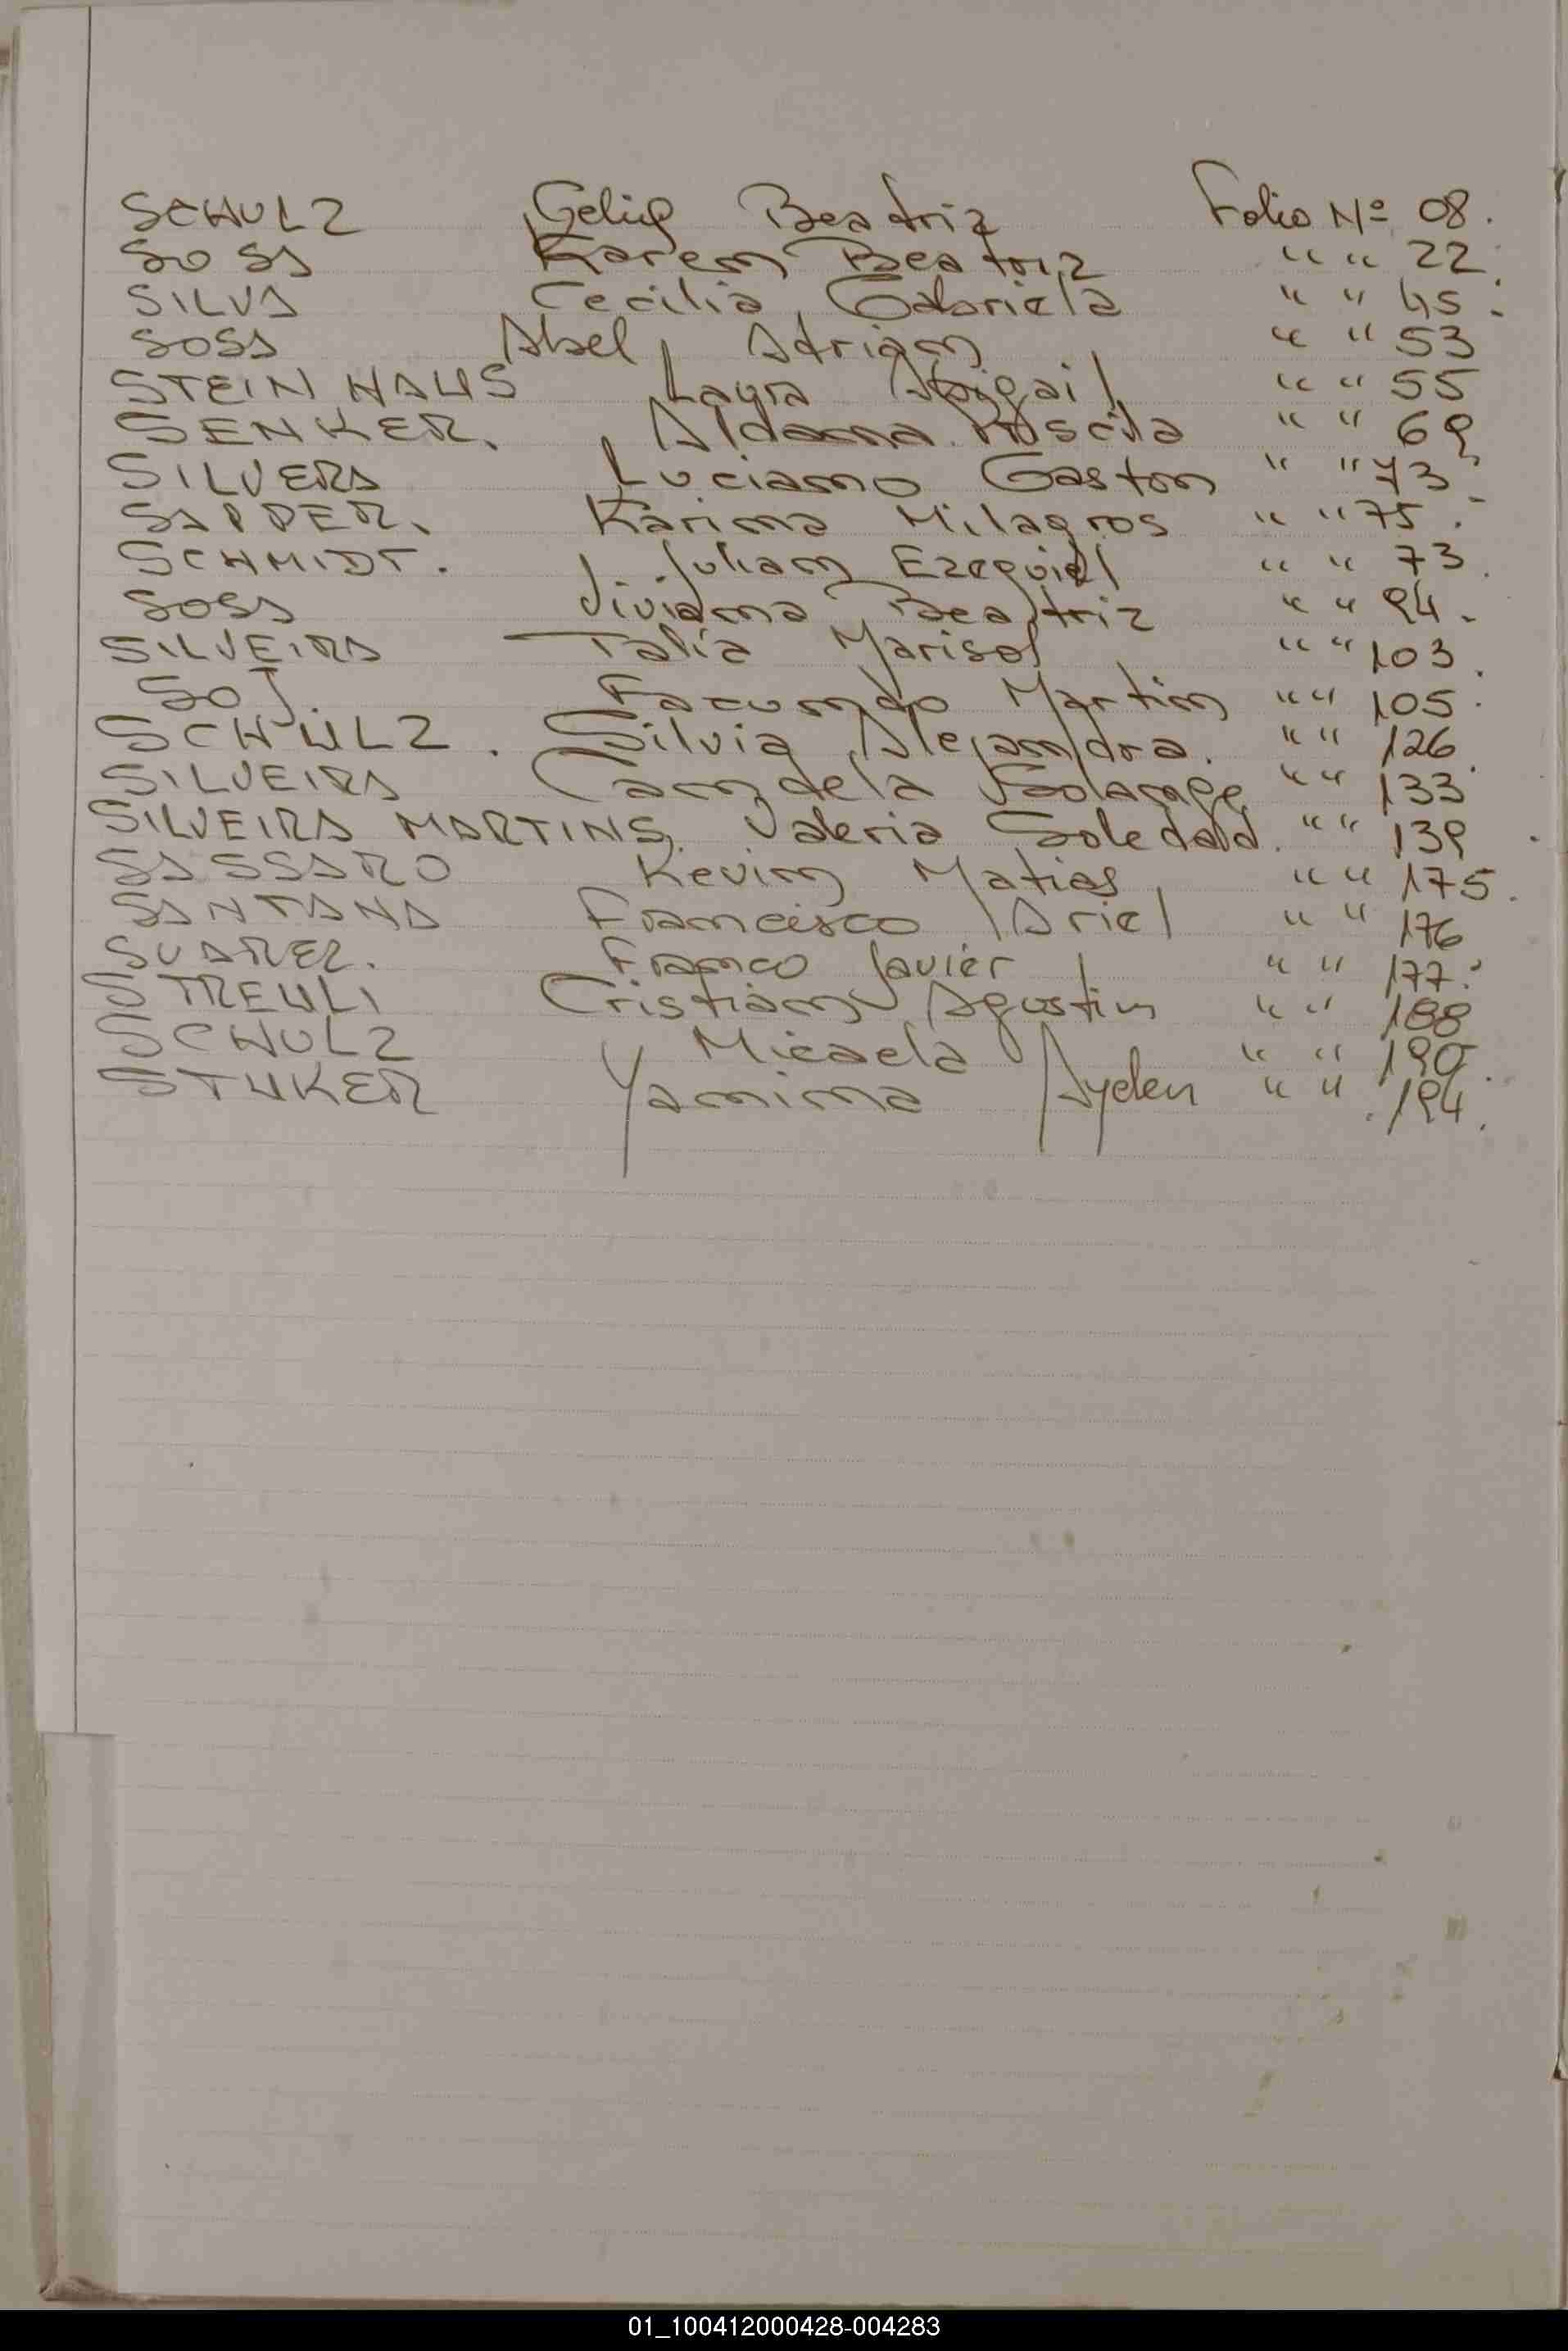 SCHULZ Gelig Beatriz Folio Nº 08.
SOSA Karen Beatriz " " 22
SILVA Cecilia Gabriela " " 45.
SOSA Abel Adrian " " 53
STEINHAUS Laura Abigail " " 55
SENKER. Aldana Priscila " " 69
SILVERA Luciano Gaston " " 73
SAPPER. Karina Milagros " " 75.
SCHMIDT. Julian Ezequiel " " 73.
SOSA Viviana Beatriz " " 94.
SILVEIRA Talia Marisol " " 103.
Facundo Martin " " 105.
SCHULZ. Silvia Alejandra. " " 126
SILVEIRA Candela Solange " " 133
SILVEIRA MARTINS. Valeria Soledad. " " 139
SASSARO Kevin Matias " " 175.
SANTANA Francisco Ariel " " 176
SUAREZ. Franco Javier " " 177.
STREULI Cristian Agustin " " 188
SCHULZ Micaela " " 190.
STUKER Yamina Ayelen " " 194.
01_100412000428-004283